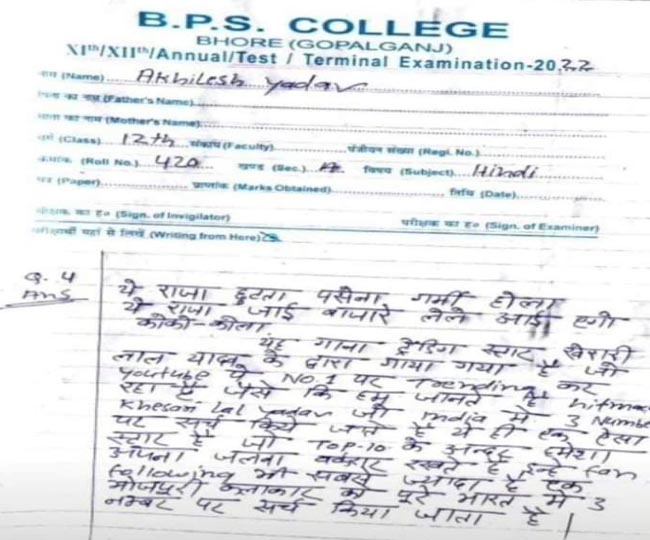 B.P.S. COLLEGE
BHORE (GOPALGANJ)
XIth/XIIth/Annual/Test / Terminal Examination-2022
नाम (Name) Akhilesh yadav
पिता का नाम (Father's Name)
माता का नाम (Mother's Name)
वर्ग (Class) 12th संकाय (Faculty) पंजीयन संख्या (Regi. No.)
क्रमांक (Roll No.) 420 खण्ड (Sec.) A विषय (Subject) Hindi
पत्र (Paper) प्राप्तांक (Marks Obtained) तिथि (Date)
वीक्षक का ह० (Sign. of Invigilator) परीक्षक का ह० (Sign. of Examiner)
परीक्षार्थी यहाँ से लिखें (Writing from Here)
Q. 4
Ans
ये राजा छुटता पसेना गर्मी होला
ये राजा जाई बाजारे लेले आई एगो
कोको-कोला
यह गाना ट्रेंडिंग स्टार खेसारी
लाल यादव के द्वारा गाया गया है जो
Youtube पे No.1 पर Trending कर
रहा है जैसे कि हम जानते है
Khesari lal yadav जी India में 3 Number
पर सर्च किये जाते है ये ही एक ऐसा
स्टार है जो TOP-10 के अन्दर हमेशा
अपना जलवा रखते है इनके fan
following भी सबसे ज्यादा है एक
भोजपुरी कलाकार को पूरे भारत में 3
नम्बर पर सर्च किया जाता है |